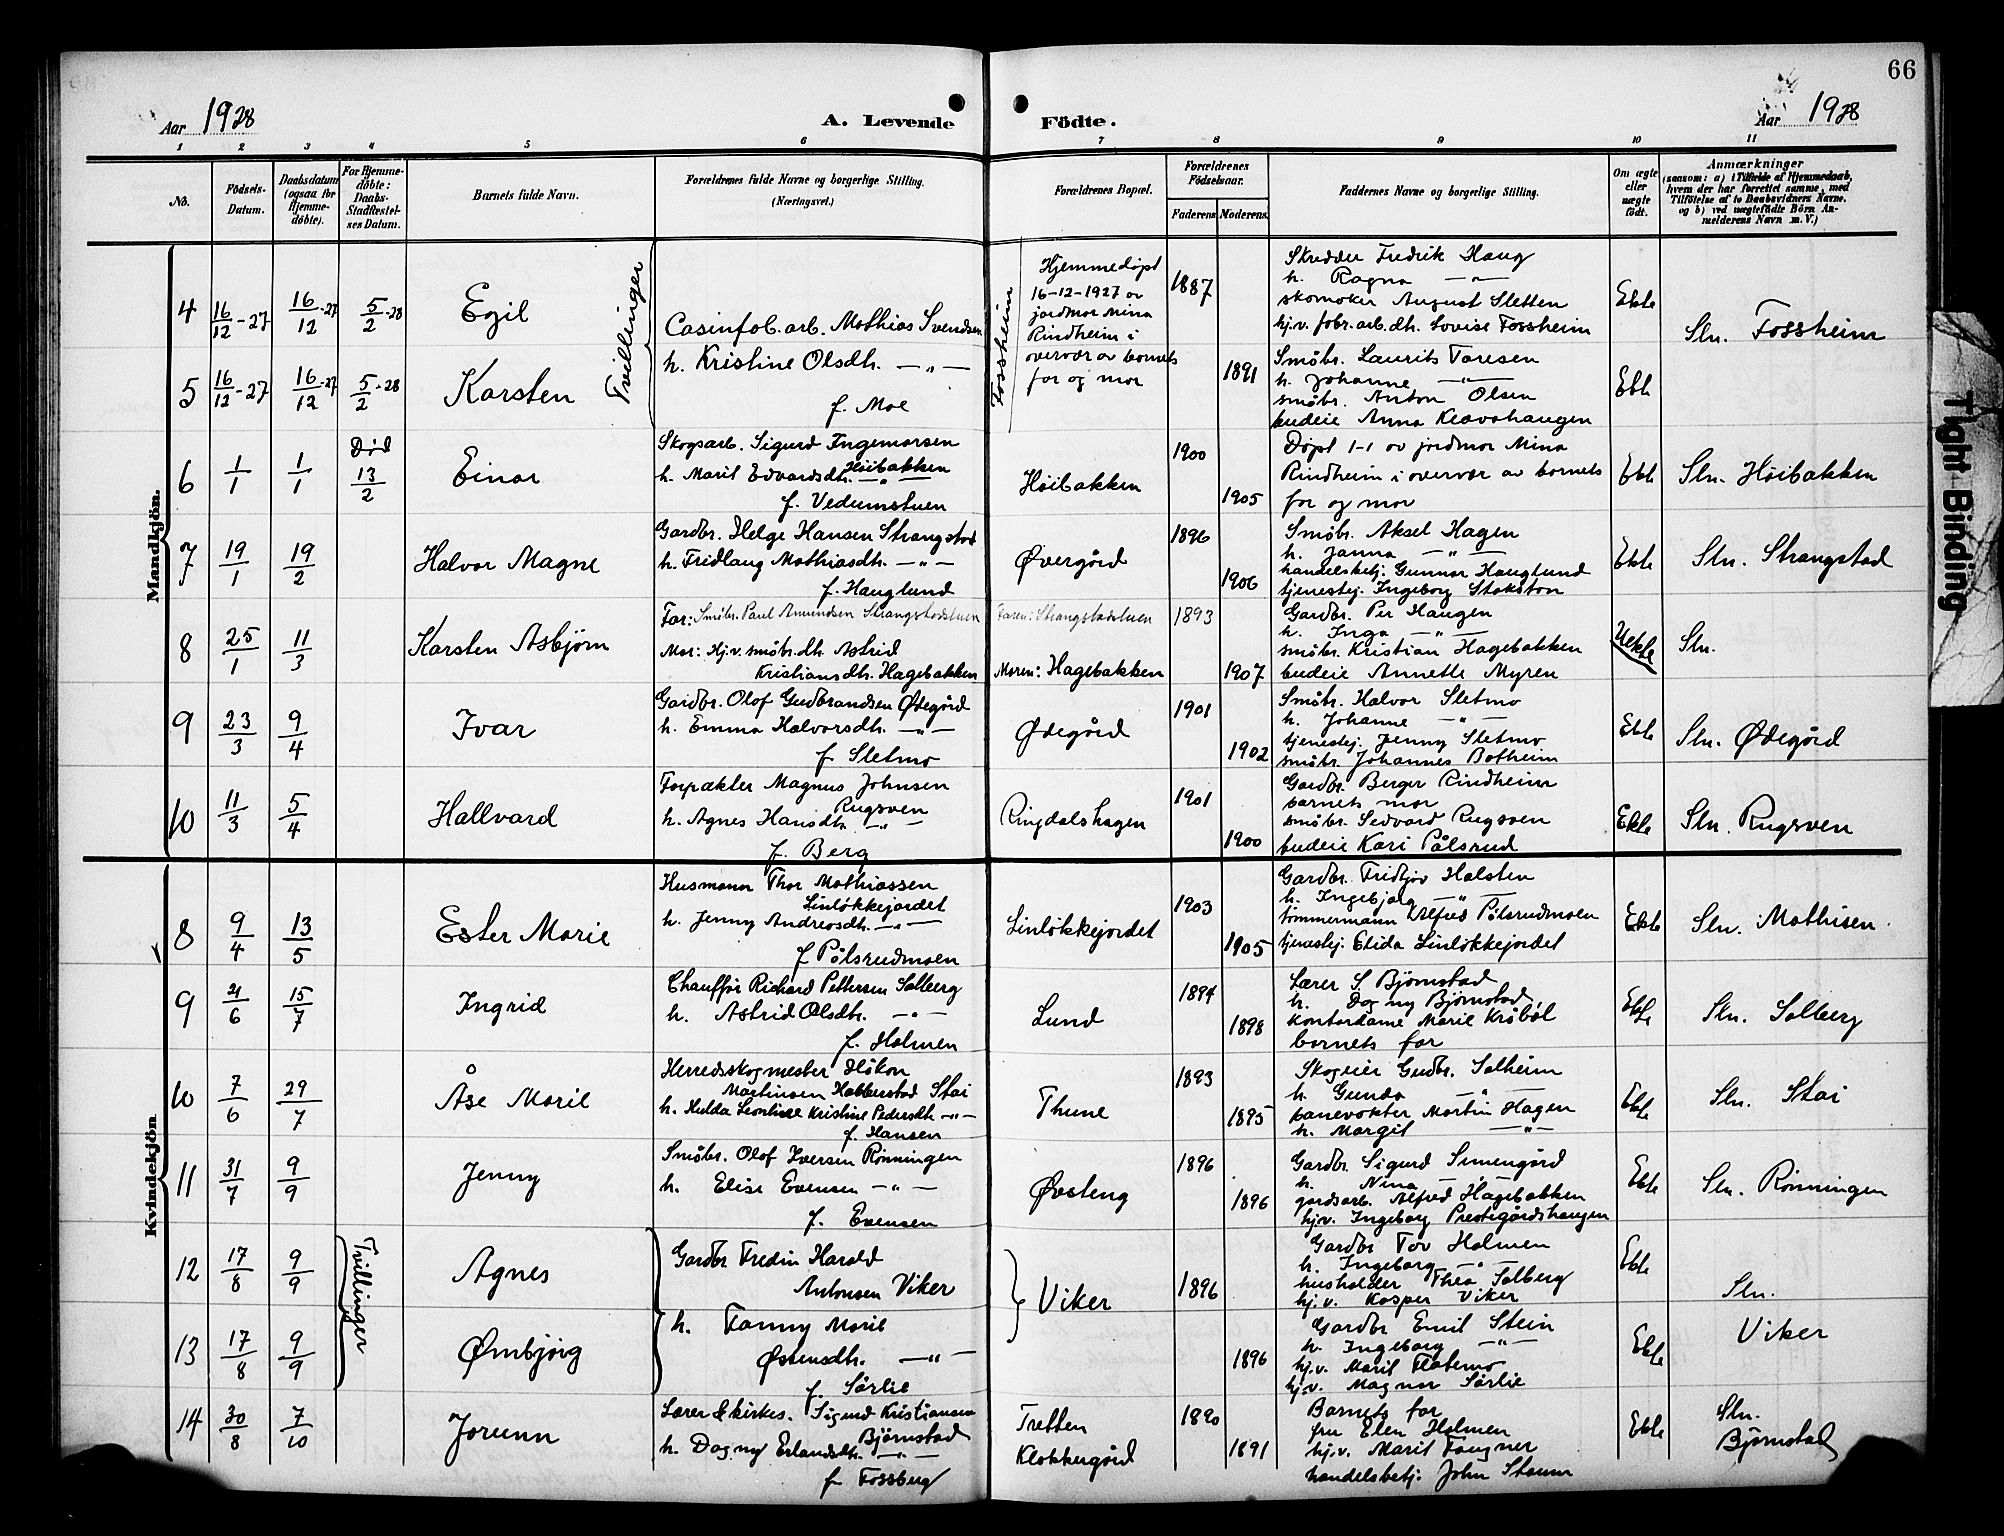 66
Aar 1928
A. Levende Födte.
Aar 1928
1 2 3 4 5 6 7 8 9 10 11
No.
Födsels-Datum.
Daabsdatum (ogsaa for Hjemme-döbte).
For Hjemme-döbte: Daabs-Stadfæstel-ses Datum.
Barnets fulde Navn.
Forældrenes fulde Navne og borgerlige Stilling.
(Næringsvei.)
Forældrenes Bopæl.
Forældrenes Födselsaar.
Faderens. Moderens.
Faddernes Navne og borgerlige Stilling.
Om ægte eller uægte födt.
Anmærkninger
(saasom: a) i Tilfælde af Hjemmedaab, hvem der har forrettet samme, med Tilföielse af to Daabsvidners Navne, og b) ved uægtefödte Börn An-melderens Navn m. V.)
Mandkjön.
4 16/12-27 16/12-27 5/2-28 Egil
Tvillinger
Casinfob.arb. Mathias Svendsen
h. Kristine Olsdh. — " —
f. Moe
Fossheim
Hjemmedøpt
16-12-1927 av
jordmor Mina
Rindheim i
overvær av barnets
far og mor
1887
1891
Skredder Fredrik Haug
h. Ragna — " —
skomaker August Sletten
hj.v. fabr.arb.dh. Lovise Fossheim
Ekte
Sln. Fossheim
5 16/12-27 16/12-27 5/2-28 Karsten
Småbr. Laurits Taresen
h. Johanne — " —
småbr. Anton Olsen
budeie Anna Klavahaugen
Ekte
6 1/1 1/1 Død 13/2 Einar
Skogsarb. Sigurd Ingemarsen
Høibakken
h. Marit Edvardsdh. — " —
f. Vedumstuen
Høibakken
1900
1905
Døpt 1-1 av jordmor Mina
Rindheim i overvær av barnets
far og mor
Ekte
Sln. Høibakken
7 19/1 19/2 Halvor Magne
Gardbr. Helge Hansen Strangstad
h. Fridlaug Mathiasdh. — " —
f. Hauglund
Øvergård
1896
1906
Småbr. Aksel Hagen
h. Janna — " —
handelsbetj. Gunnar Hauglund
tjenestej. Ingeborg Stakston
Ekte
Sln. Strangstad
8 25/1 11/3 Karsten Asbjørn
Far: Småbr. Paul Amundsen Strangstadstuen
Mor: Hj.v. småbr.dh. Astrid
Kristiansdh. Hagebakken
Faren: Strangstadstuen
Moren: Hagebakken
1893
1907
Gardbr. Per Haugen
h. Inga — " —
småbr. Kristian Hagebakken
budeie Annette Myren
Uekte
Sln.
9 23/3 9/4 Ivar
Gardbr. Olaf Gudbrandsen Ødegård
h. Emma Halvorsdh. — " —
f. Sletmo
Ødegård
1901
1902
Småbr. Halvor Sletmo
h. Johanne — " —
tjenestej. Jenny Sletmo
småbr. Johannes Botheim
Ekte
Sln. Ødegård
10 11/3 5/4 Hallvard
Forpakter Magnus Johnsen
Rugsven
h. Agnes Hansdh. — " —
f. Berg
Ringdalshagen
1901
1900
Gardbr. Berger Rindheim
barnets mor
småbr. Sedvard Rugsven
budeie Kari Pålsrud
Ekte
Sln. Rugsven
Kvindekjön
8 9/4 13/5 Ester Marie
Husmann Thor Mathiassen
Linløkkejordet
h. Jenny Andreasdh. — " —
f. Pålsrudmoen
Linløkkejordet
1903
1905
Gardbr. Fridtjov Halsten
h. Ingebjørg — " —
tømmermann Alfred Pålsrudmoen
tjenestej. Elida Linløkkejordet
Ekte
Sln. Mathisen
9 21/6 15/7 Ingrid
Chauffør Richard Pettersen Solberg
h. Astrid Olsdtr. — " —
f. Holmen
Lund
1894
1898
Lærer S. Bjørnstad
h. Dagny Bjørnstad
kontordame Marie Kråbøl
barnets far
Ekte
Sln. Solberg
10 7/6 29/7 Åse Marie
Herredsskogmester Håkon
Martinsen Habberstad Stai
h. Hulda Leontine Kristine Pedersdh. — " —
f. Hansen
Thune
1893
1895
Skogeier Gudbr. Solheim
h. Gunda — " —
banevokter Martin Hagen
h. Margit — " —
Ekte
Sln. Stai
11 31/7 9/9 Jenny
Småbr. Olaf Iversen Rønningen
h. Elise Evensen — " —
f. Evensen
Øvsteng
1896
1896
Gardbr. Sigurd Simengård
h. Nina — " —
gardsarb. Alfred Hagebakken
hj.v. Ingeborg Prestegårdshaugen
Ekte
Sln. Rønningen
12 17/8 9/9 Agnes
Tvillinger
Gardbr. Fredin Harald
Antonsen Viker
h. Fanny Marie
Østensdh. — " —
f. Sørlie
Viker
1896
1896
Gardbr. Tov Holmen
h. Ingeborg — " —
husholder Thea Solberg
hj.v. Kasper Viker
Ekte
Sln.
Viker
13 17/8 9/9 Ørnbjørg
Gardbr. Emil Stein
h. Ingeborg — " —
hj.v. Marit Flatemo
hj.v. Magnar Sørlie
Ekte
14 30/8 7/10 Jorunn
Lærer & kirkes. Sigurd Kristiansen
Bjørnstad
h. Dagny Erlandsdh. — " —
f. Fossberg
Tretten
Klokkergård
1890
1891
Barnets far
fru Elen Holmen
hj.v. Marit Fougner
handelsbetj. John Staum
Ekte
Sln.
Bjørnstad
Tight Binding